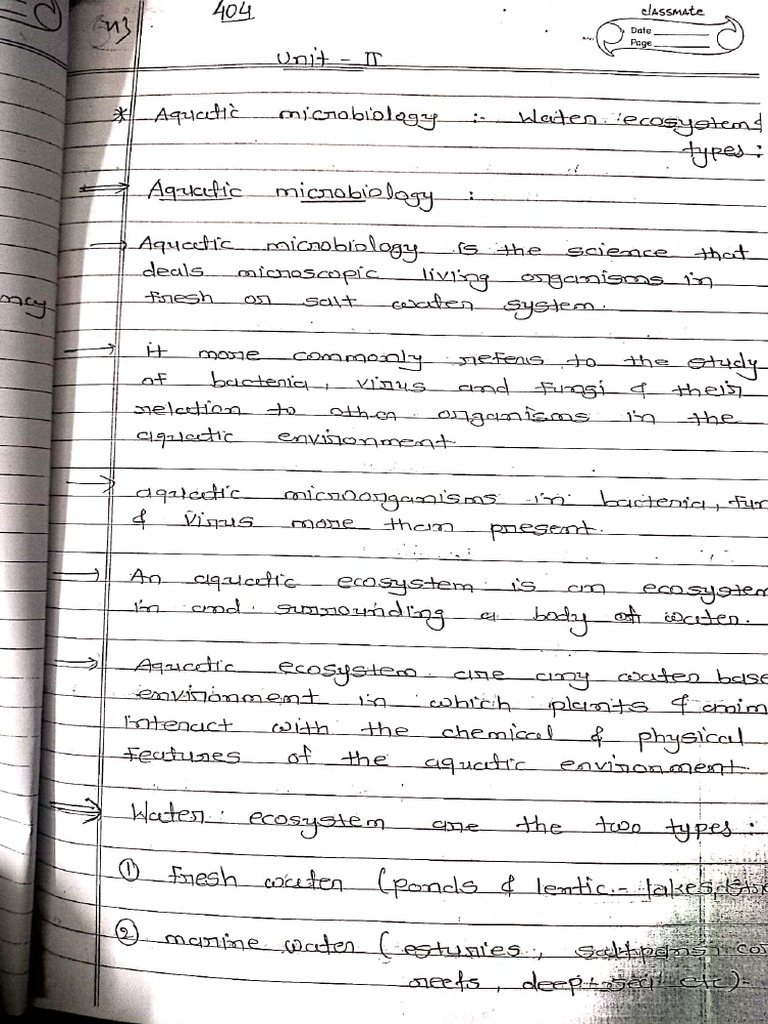 404
classmate
Date
Page
Unit - II
* Aquatic microbiology :- Water ecosystem &
types :
⇒ Aquatic microbiology :
→ Aquatic microbiology is the science that
deals microscopic living organisms in
fresh or salt water system.
→ it more commonly refers to the study
of bacteria, virus and fungi & their
relation to other organisms in the
aquatic environment
→ aquatic microorganisms in bacteria, fun
& virus more than present.
→ An aquatic ecosystem is an ecosystem
in and surrounding a body of water.
→ Aquatic ecosystem are any water base
environment in which plants & anim
interact with the chemical & physical
features of the aquatic environment.
⇒ Water ecosystem are the two types :
① fresh water (ponds & lentic - lakes,
② marine water (esturies, saltpans, co
reefs, deep sea etc).
ncy